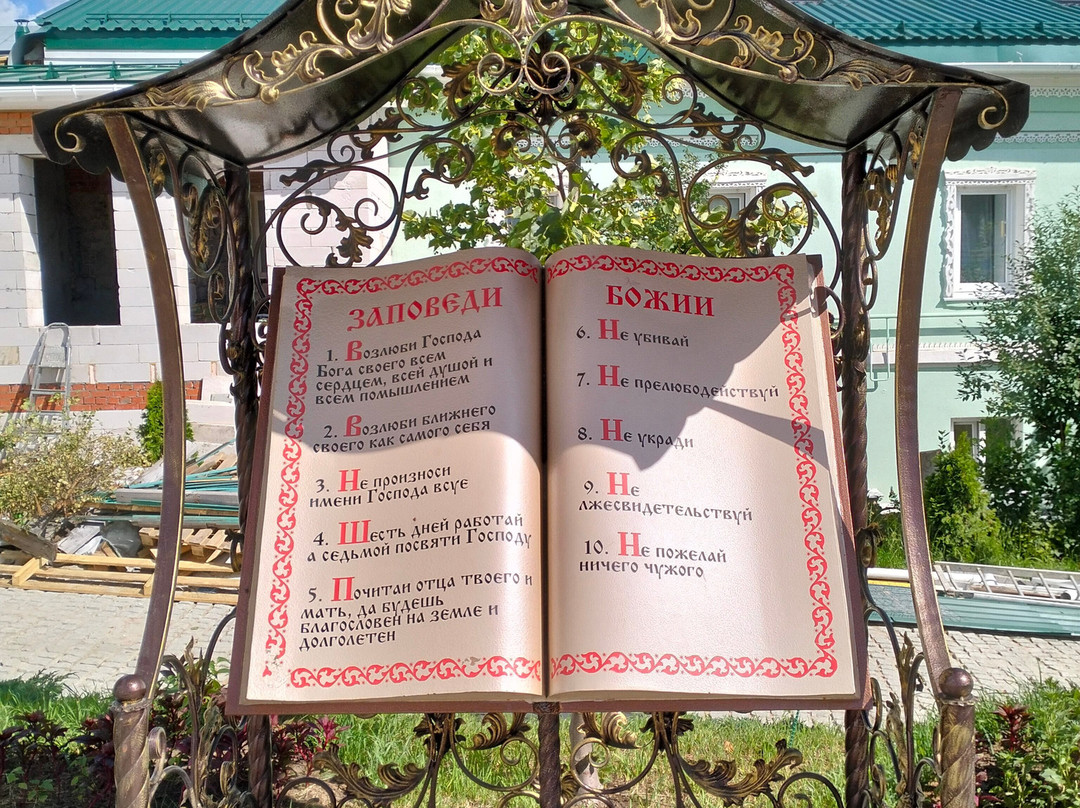 ЗАПОВЕДИ
1. Возлюби Господа
Бога своего всем
сердцем, всей душой и
всем помышлением
2. Возлюби ближнего
своего как самого себя
3. Не произноси
имени Господа всуе
4. Шесть дней работай
а седьмой посвяти Господу
5. Почитай отца твоего и
мать, да будешь
благословен на земле и
долголетен
БОЖИИ
6. Не убивай
7. Не прелюбодействуй
8. Не укради
9. Не
лжесвидетельствуй
10. Не пожелай
ничего чужого